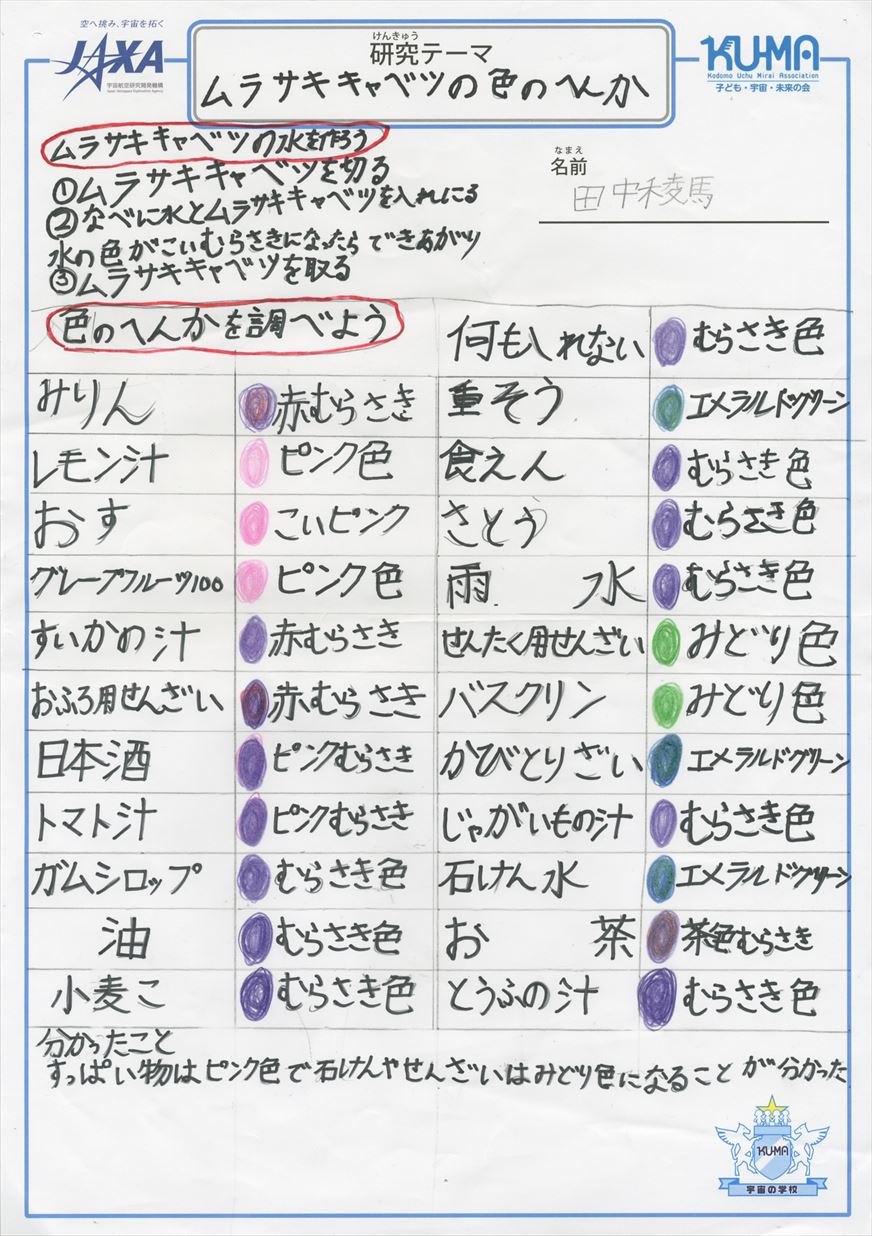 空へ挑み、宇宙を拓く
JAXA
宇宙航空研究開発機構
Japan Aerospace Exploration Agency
けんきゅう
研究テーマ
ムラサキキャベツの色のへんか
KU-MA
Kodomo Uchu Mirai Association
子ども・宇宙・未来の会
ムラサキキャベツの水を作ろう
①ムラサキキャベツを切る
②なべに水とムラサキキャベツを入れにる
水の色がこいむらさきになったらできあがり
③ムラサキキャベツを取る
なまえ
名前
田中稜馬
色のへんかを調べよう
何も入れない むらさき色
みりん 赤むらさき 重そう エメラルドグリーン
レモン汁 ピンク色 食えん むらさき色
おす こいピンク さとう むらさき色
グレープフルーツ100 ピンク色 雨水 むらさき色
すいかの汁 赤むらさき せんたく用せんざい みどり色
おふろ用せんざい 赤むらさき バスクリン みどり色
日本酒 ピンクむらさき かびとりざい エメラルドグリーン
トマト汁 ピンクむらさき じゃがいもの汁 むらさき色
ガムシロップ むらさき色 石けん水 エメラルドグリーン
油 むらさき色 お茶 茶色むらさき
小麦こ むらさき色 とうふの汁 むらさき色
分かったこと
すっぱい物はピンク色で石けんやせんざいはみどり色になることが分かった
KU-MA
宇宙の学校